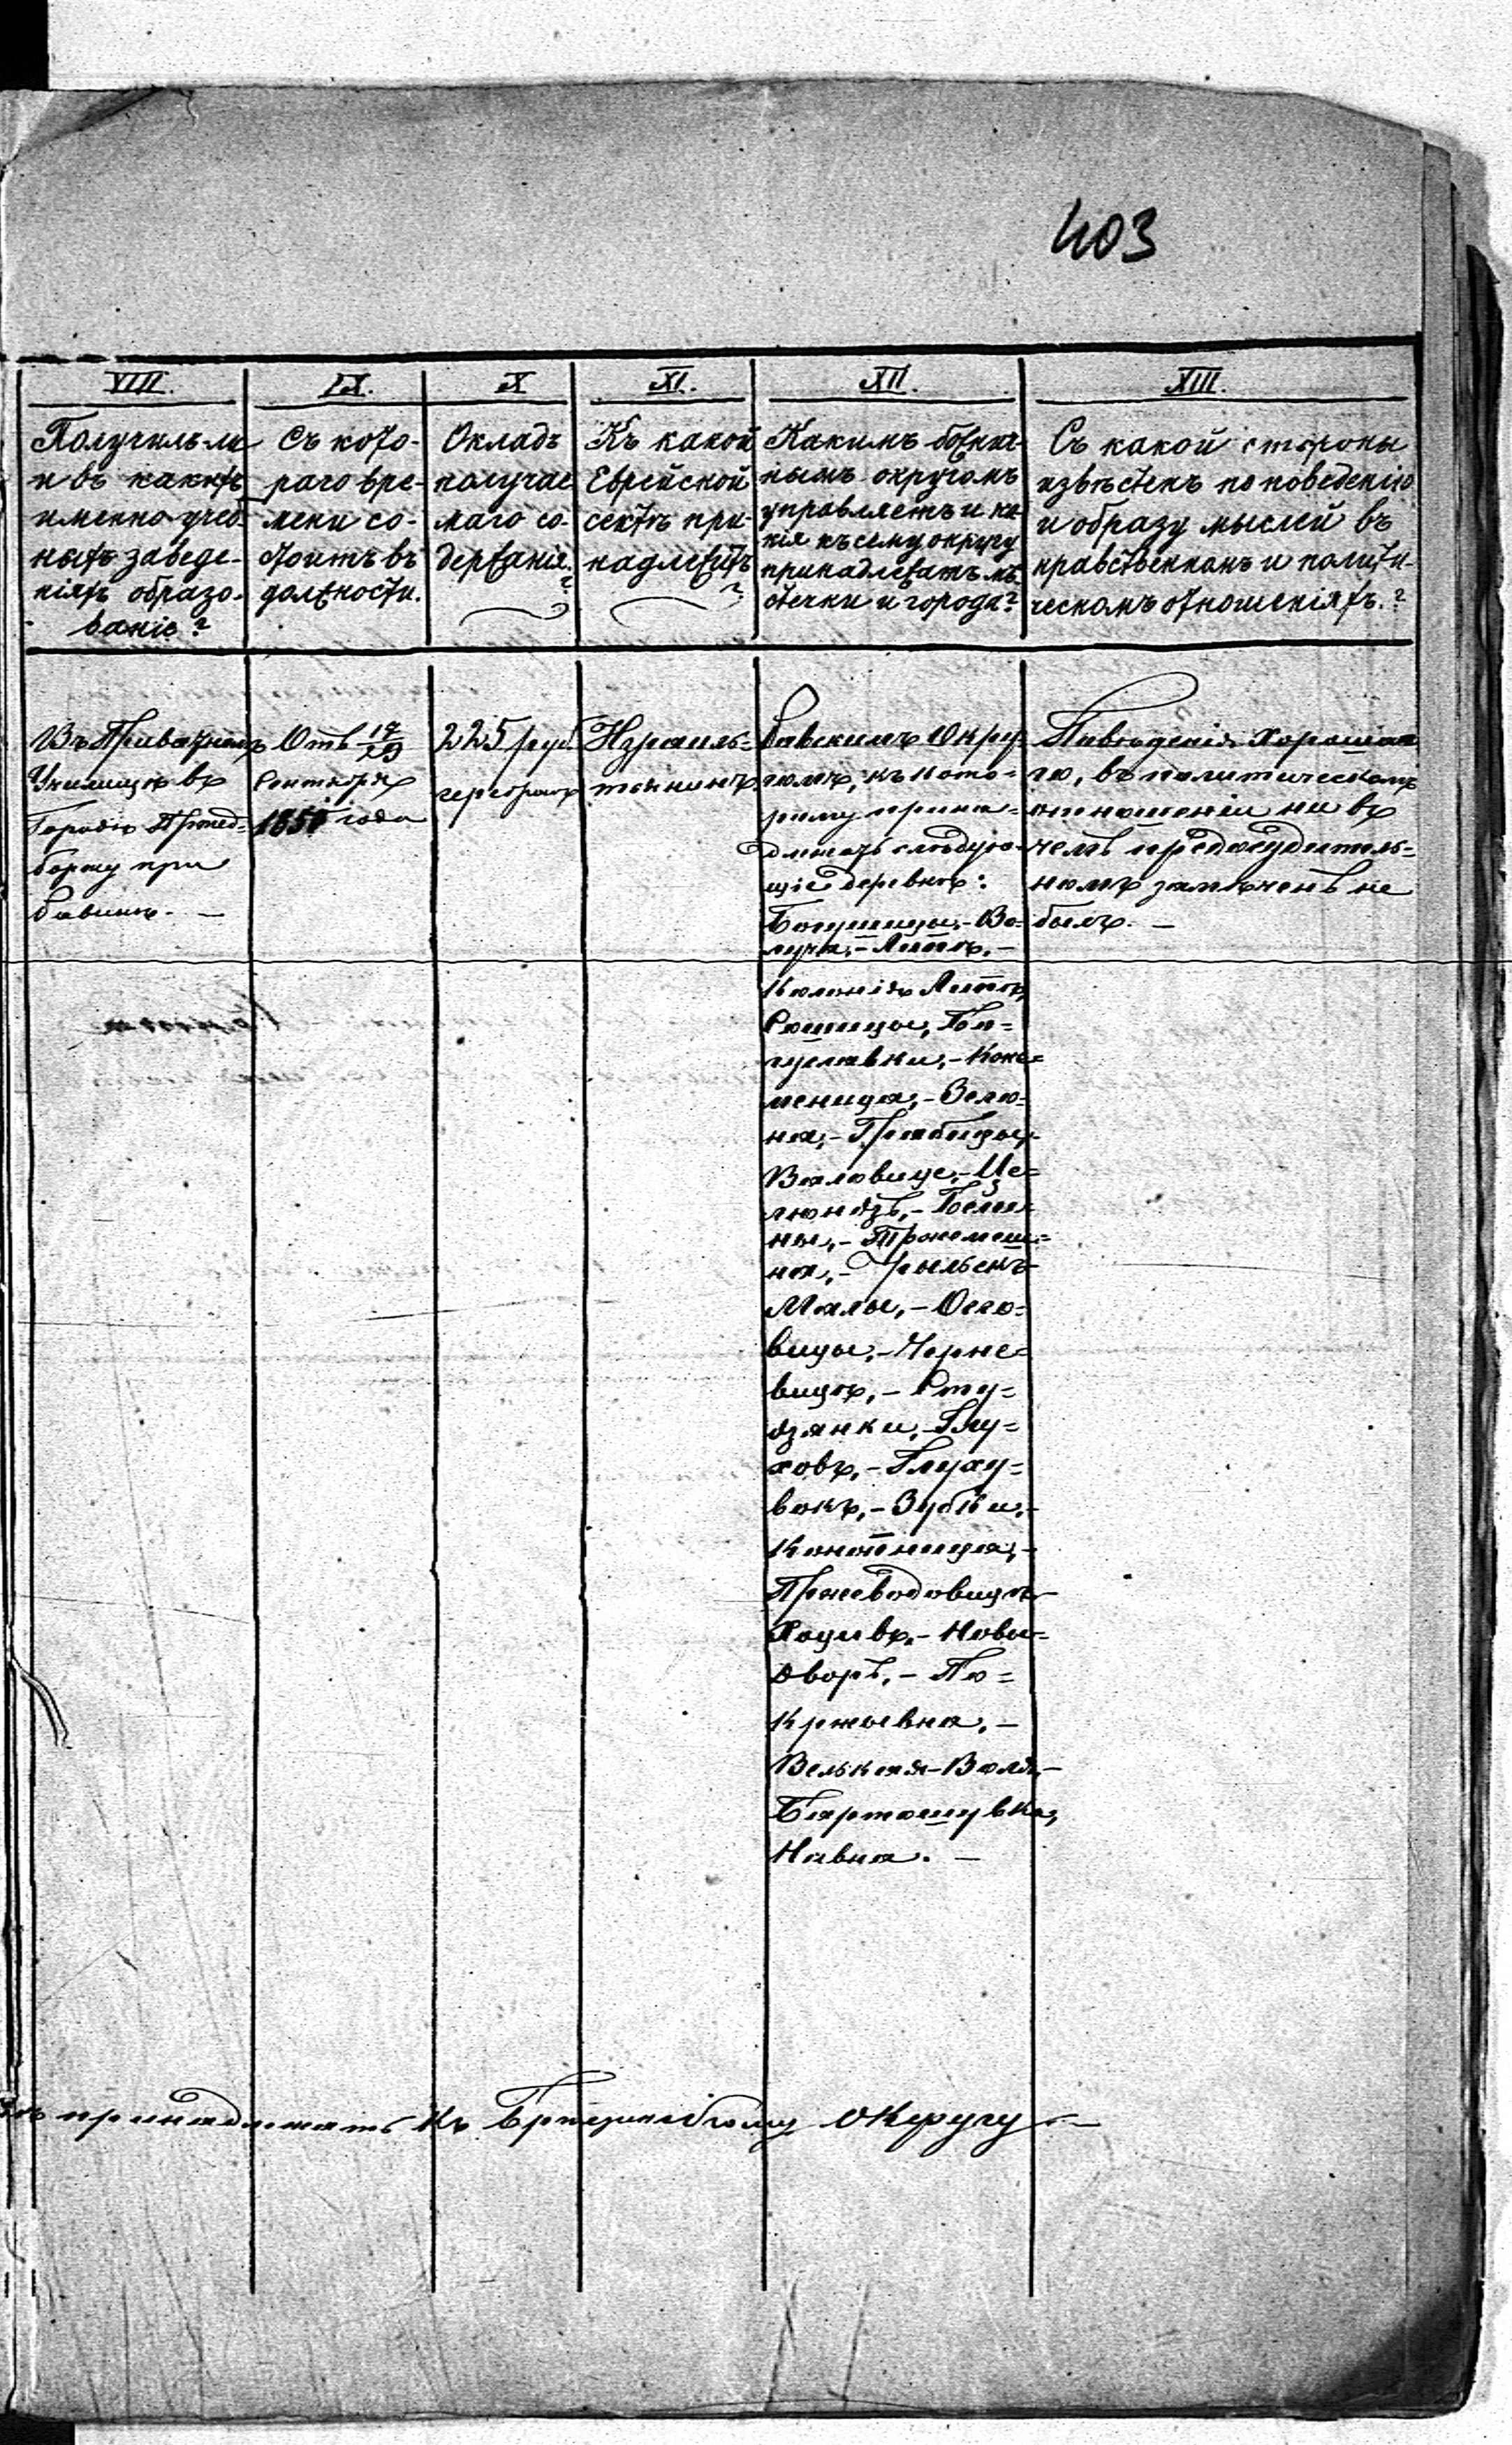 403
VIII.
Получилъ ли
и въ какихъ
именно учеб-
ныхъ заведе-
ніяхъ образо-
ваніе?
IX.
Съ кото-
раго вре-
мени со-
стоитъ въ
должности.
X
Окладъ
получае
маго со-
держанія.
?
XI.
Къ какой
Еврейской
сектѣ при-
надлежитъ
?
XII.
Какимъ божнич-
нымъ округомъ
управляетъ и ка
кія къ сему округу
принадлежатъ мѣ
стечки и города?
XIII.
Съ какой стороны
извѣстенъ по поведенію
и образу мыслей въ
нравственномъ и полити-
ческомъ отношеніяхъ.?
Въ Приватномъ
Училищѣ въ
Городѣ
при
Отъ 17/29
Сентября
1851 года
225 руб.
серебромъ
Израиль=
тянинъ
Равскимъ Окру
гомъ, къ кото=
рому прина=
длежатъ слѣдую=
щіе деревнѣ:
Богушицы,- Во=
луча,- Липіе,-
Колонія Липіе,
Рошицы, Бо=
гуславки,- Коно=
меница,- Зело=
на,- Грабицы,-
Валовице,- Це=
люндзъ,-
Рыльскъ
Малы,- Осо=
вицы,- Черне=
вицъ,- Сту=
дзянки,- Глу=
ховъ,- Глуху=
векъ,- Зубки,-
Конопница,-
Пржеводовицъ
Новы=
Дворъ,- По=
кржывна,-
Велькая-Воля,-
Бартошувка,
Навна. -
Поведенія Хороша=
го, въ политическомъ
отношеніи ни въ
чемъ предосудитель=
номъ замѣченъ не
былъ. -
принадлежатъ къ Брезинскому округу -